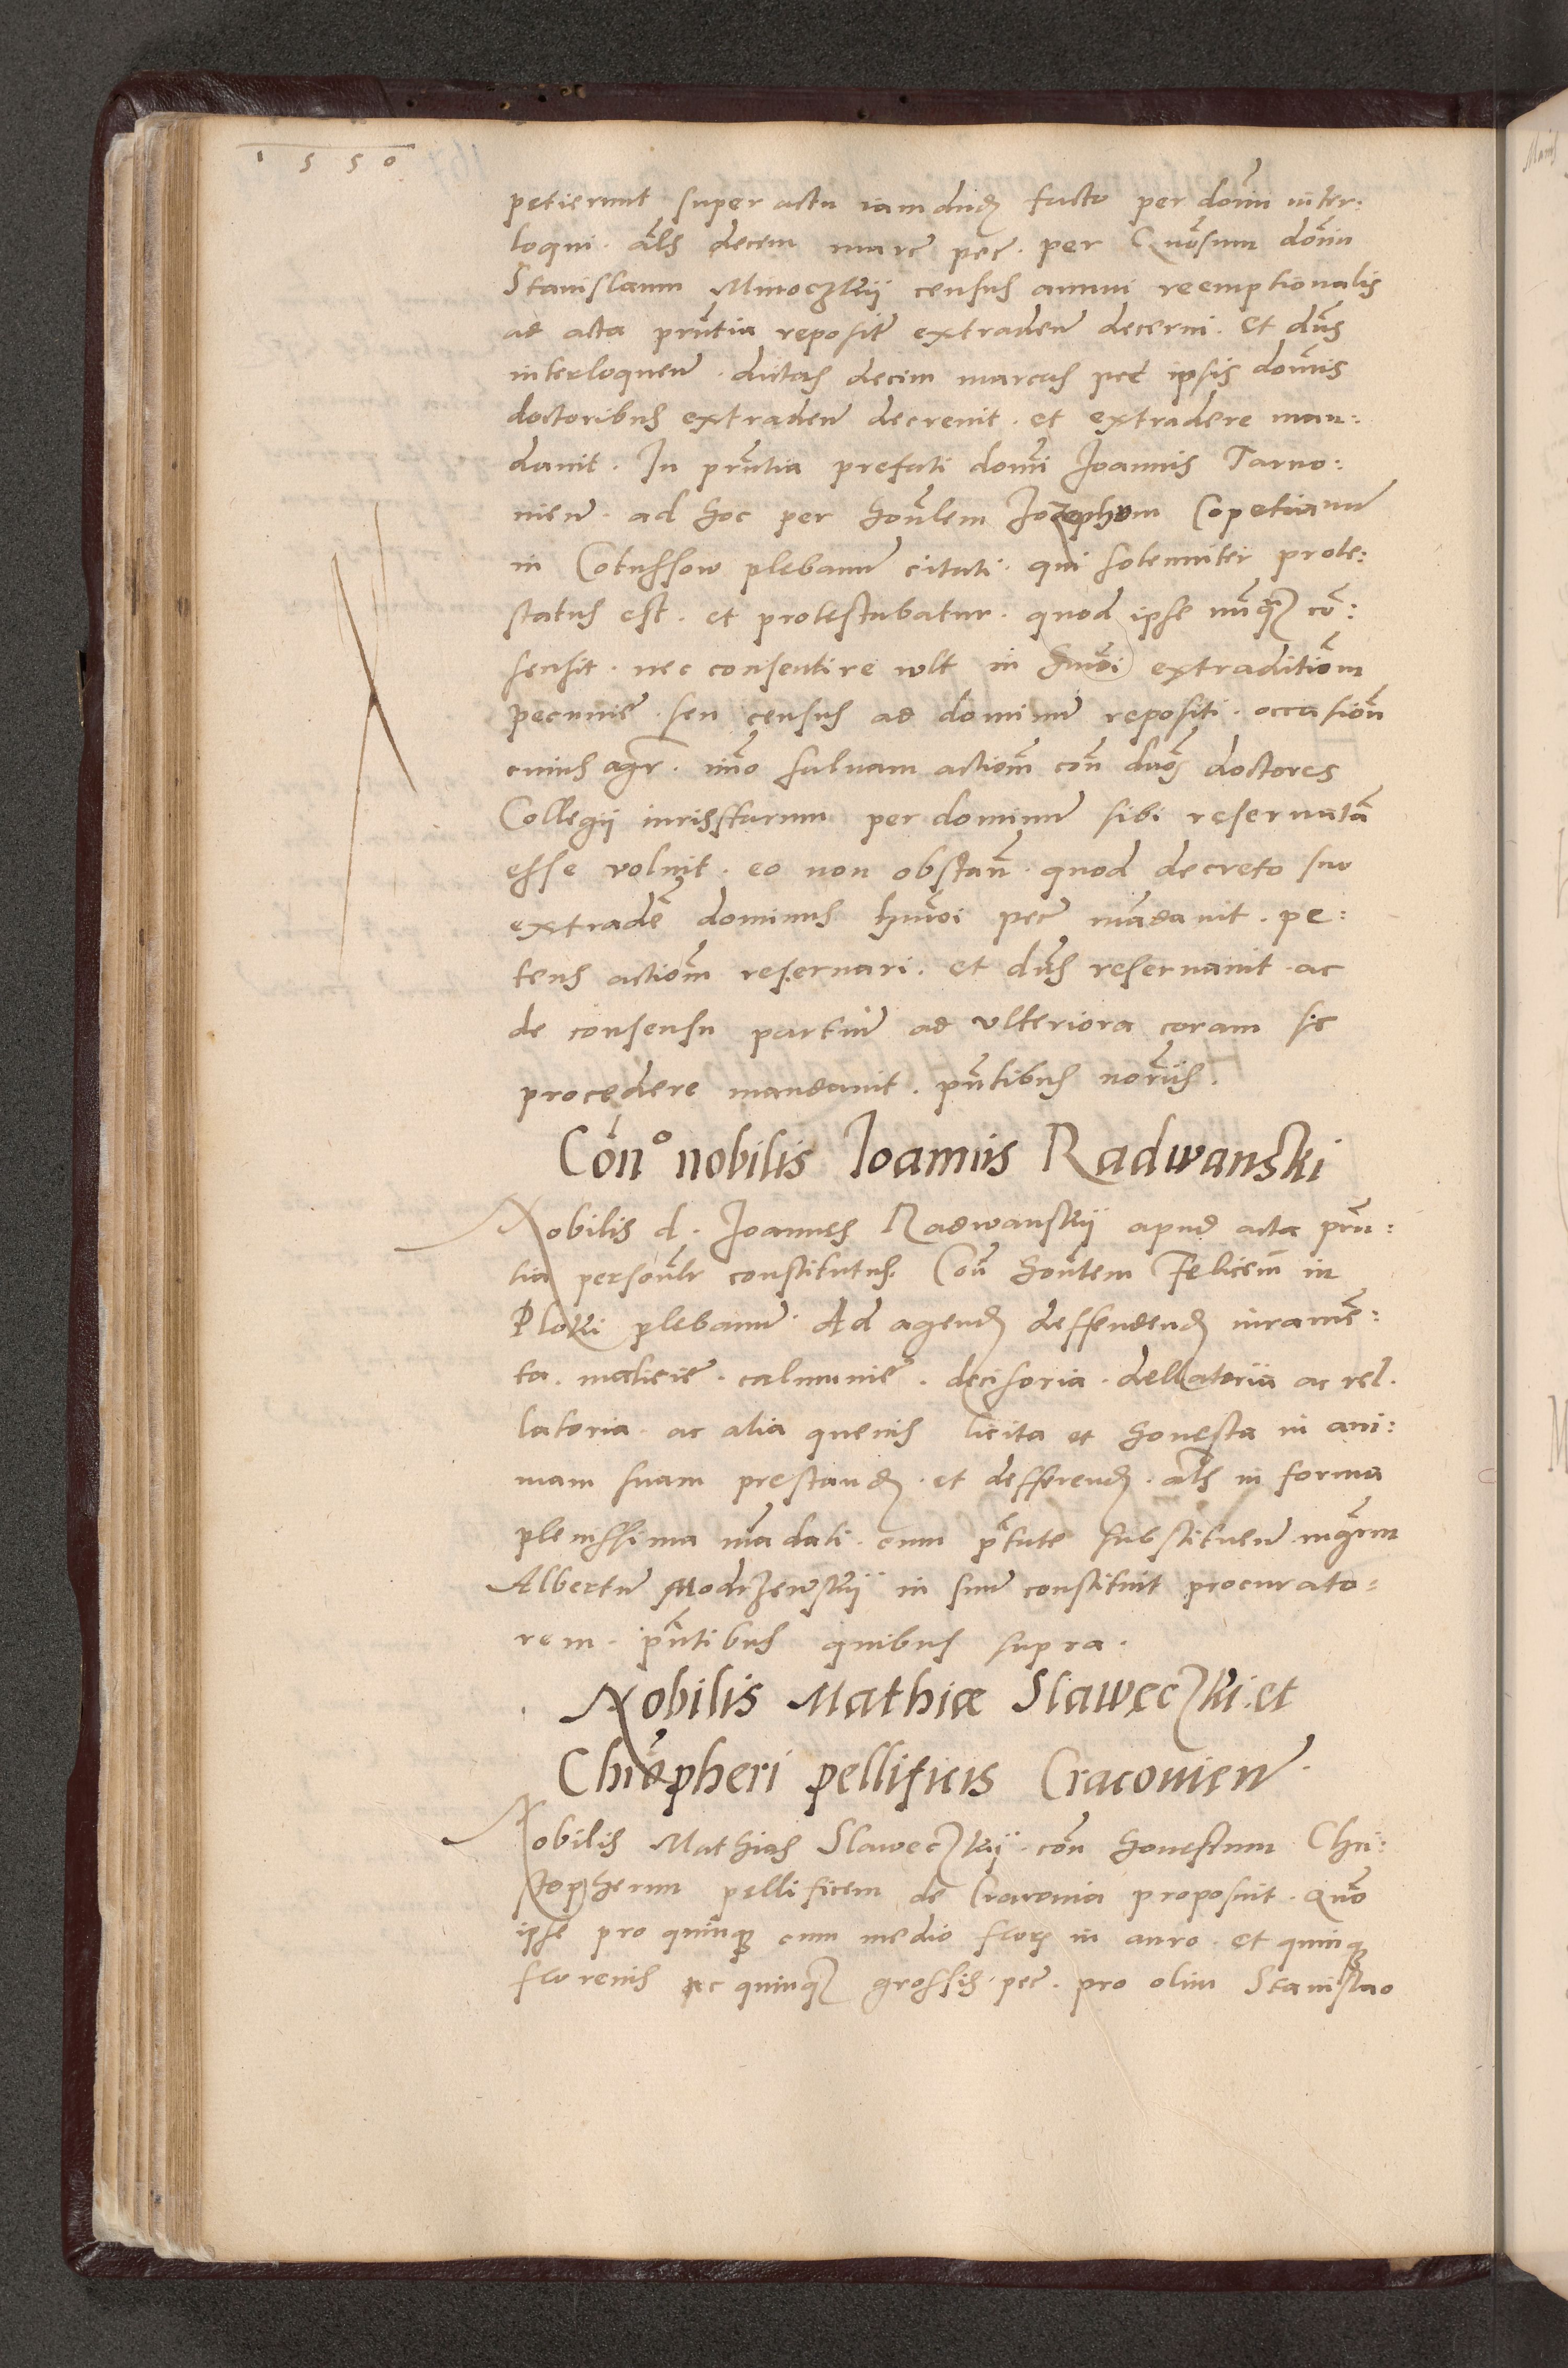 1550
petierunt super actu iam dudꝫ facto per domi inter:
loqui. als̄ decem marc̄ pec̄. per Gnōsum dōnū
Stanislaum Minoczkij census annui reemptionalis
ad acta pn̄tia reposit̄ extraden̄ decerni. et dn̄s
interloquen̄. dictas decim marcas pec̄ ipsis domīs
doctoribus extraden̄ decreuit. et extradere man:
dauit. In pn̄tia prefati domī Joannis Tarno:
uien̄. ad hoc per honlem̄ Jozephum
in plebanū citati. qui solenniter prote:
status est. et protestabatur. quod ipse nūqꝫ cō:
sensit. nec consentire wlt in hmōi extraditiōm
pecunie. seu census ad dominū repositi. occasiōn
cuius agr̄. imo saluam actiōm cōn duos doctores
Collegij iuristarum per dominū sibi reseruatā
esse voluit. eo non obstan̄. quod decreto suo
extradē dominus hmōi pec̄ mādauit. pe:
tens actiōm reseruari. et dn̄s reseruauit. ac
de consensu partiū ad vlteriora coram se
procedere mandauit. pn̄tibus norijs.
Cōn° nobilis Joannis Radwanski
Nobilis d. Joannes Radwanskij apud acta prn̄:
tia personlr̄ constitutus. Con̄ honlem̄ Felicem in
Ploki plebanū. Ad agendꝫ deffendendꝫ iuramē:
ta. malicie. calumnie. decisoria. dellatoria ac rel.
latoria. ac alia queuis licita et honesta in ani:
mam suam prestandꝫ. et defferendꝫ. als̄ in forma
plenissima mādati. cum ptāte substituen̄ mgrm̄
Albertū Modrzewskij in suum constituit procurato:
rem. pn̄tibus quibus supra.
Nobilis Mathiæ Slaweczki. et
Chrōpheri pellificis Cracouien̄.
Nobilis Mathias Slaweczkij. cōn honestum Chri:
stopherum pellificem de Cracouia proposuit. Quō
ipse pro quinqꝫ cum medio flor̄ in auro. et quinqꝫ
florenis ac quinqꝫ grossis. pec̄. pro olim Stanislao